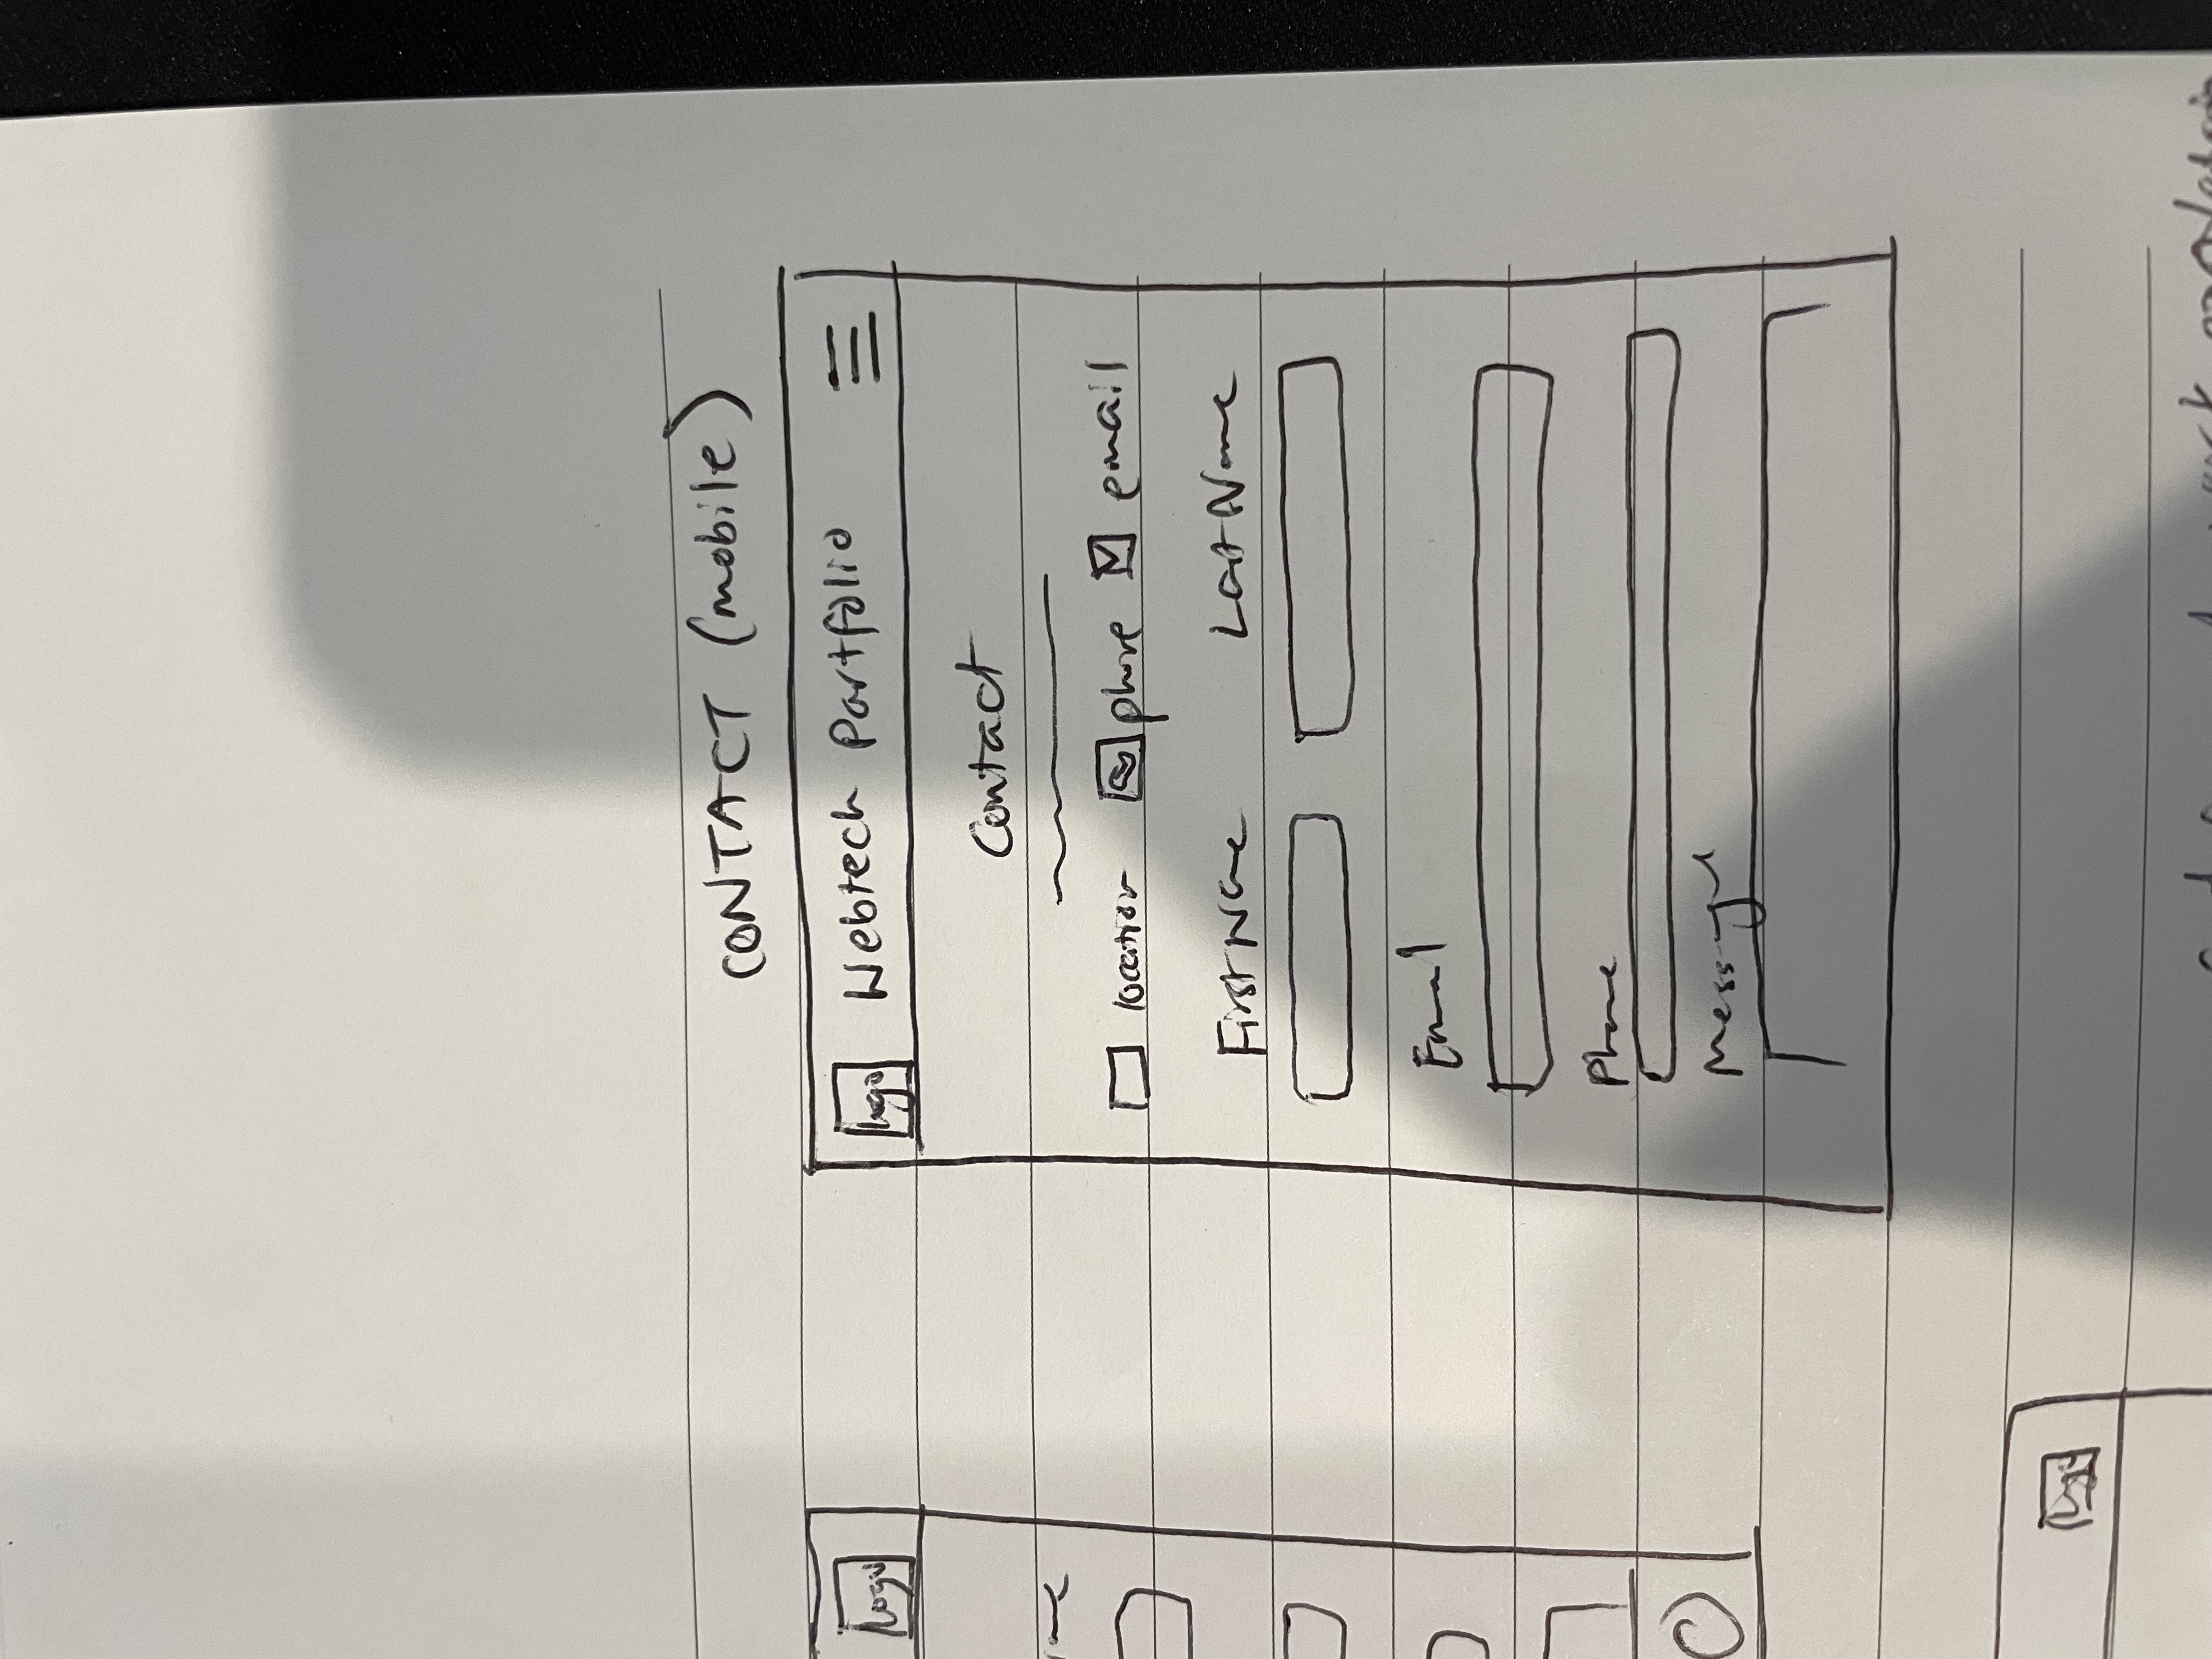 CONTACT (mobile)
logo
logo Webtech Portfolio
Contact
location phone email
First Name Last Name
Email
Phone
Message
logo